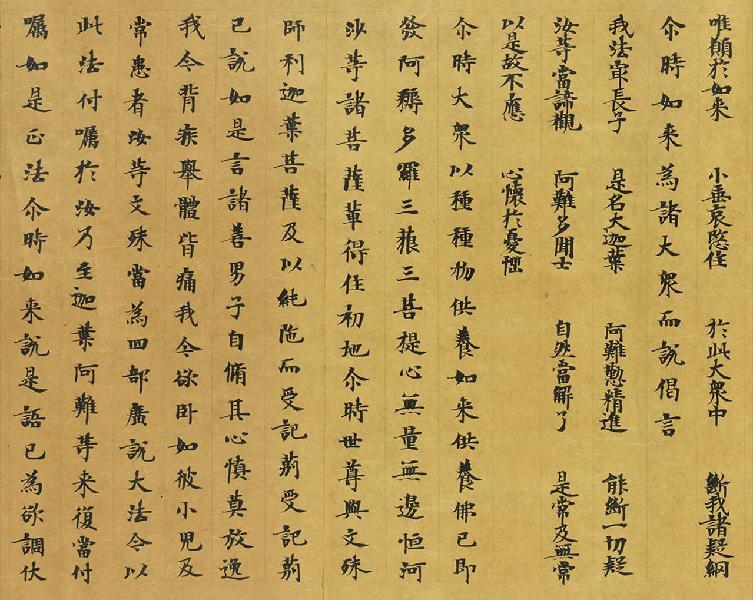 唯願於如来　小垂哀愍住　於此大衆中　斷我諸疑網
尒時如来為諸大衆而說偈言
我法㝡長子　是名大迦葉　阿難懃精進　能斷一切疑
汝等當諦觀　阿難多聞士　自然當解了　是常及無常
以是故不應　心懷於憂惱
尒時大衆以種種物供養如来供養佛已即
發阿耨多羅三藐三菩提心無量無邊恒河
沙等諸菩薩輩得住初地尒時世尊與文殊
師利迦葉菩薩及以純陁而受記莂受記莂
已說如是言諸善男子自脩其心慎莫放逸
我今背疾舉體皆痛我今欲卧如彼小兒及
常患者汝等文殊當為四部廣說大法今以
此法付囑於汝乃至迦葉阿難等来復當付
囑如是正法尒時如来說是語已為欲調伏